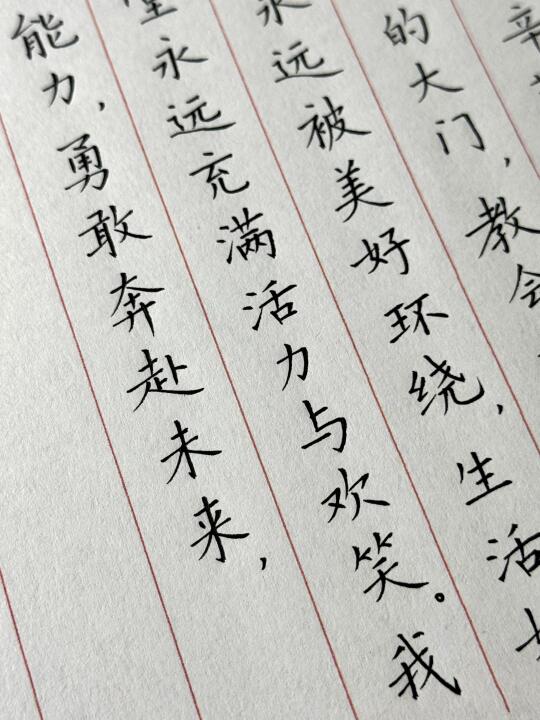 的大门，教会
永远被美好环绕，生活
永远充满活力与欢笑。我
能力，勇敢奔赴未来，